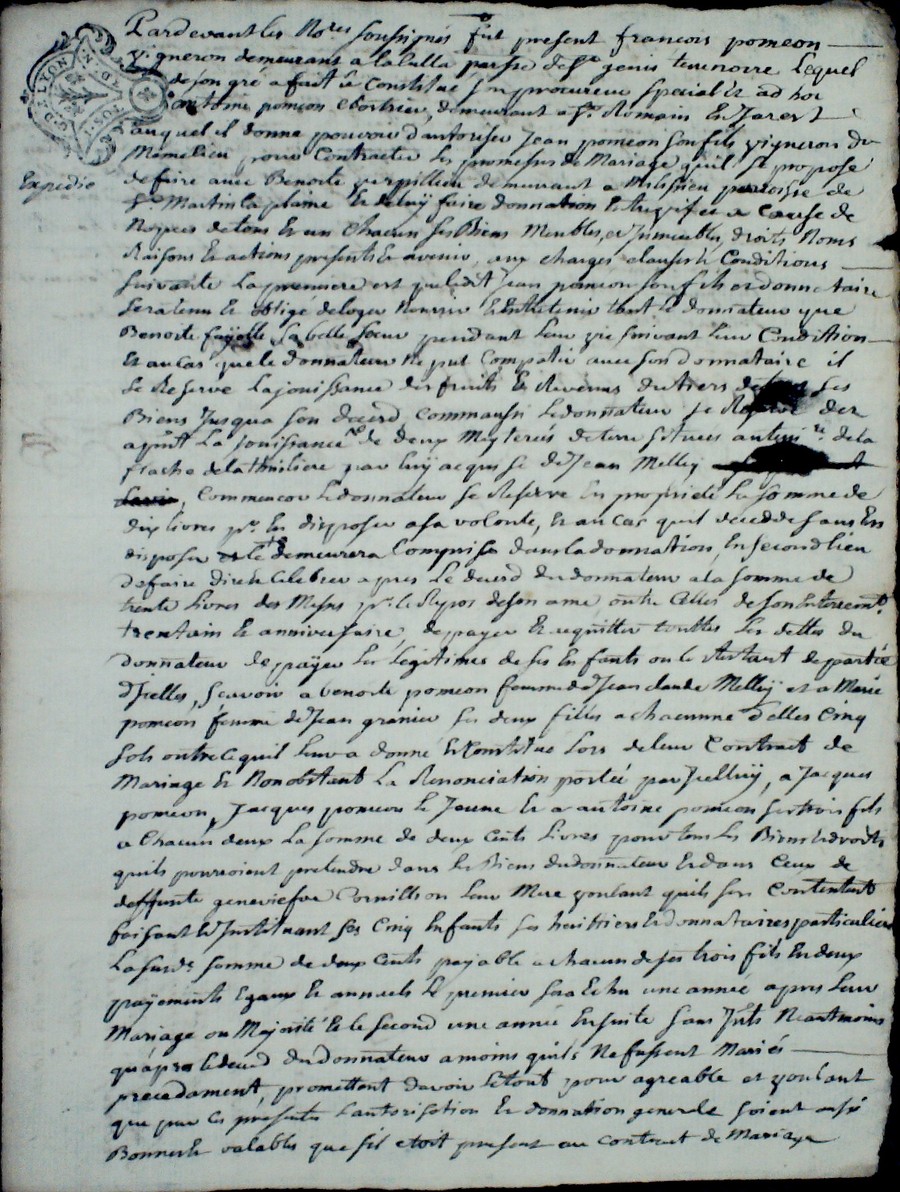 Pardevant les No.res soussignés fut present francois pomeon
vigneron demeurant a la Culla parsse de St genis terrenoire Lequel
de son gré a fait et Constitué son procureur special et ad hoc
antoine pomeon demeurant a St. Romain En Jarest
auquel il donne pouvoir d'autoriser Jean pomeon son fils vigneron du
pour Contracter les promesses de Mariage quil se propose
Expedié
de faire avec Benoite demeurant a paroisse de
St. Martin la plaine Et de luy faire donnation Et a Cause de
Nopces de tous Et un Chacun ses Biens Meubles, et Jmmeubles, droits Noms
Raisons Et actions presents Et avenir, aux charges clauses et Conditions
suivante La premiere est que ledit Jean pomeon son fils et donnataire
sera tenu Et obligé de loger Nourrir Et Entretenir tant le donnateur que
Benoite fayolle sa belle soeur pendant leur vie suivant leur Condition
Et au Cas que le donnateur Ne put Compatir avec son donnataire il
se Reserve La jouissance des fruits Et Revenus du tiers de ses
Biens Jusqua son deced Comme aussi Le donnateur se Reserve
La Jouissance de deux Meyterées de terre situées de la
de la thuiliere par luy acquise de Jean Melley
, Comme encor Le donnateur se Reserve En proprieté La somme de
dix livres pr. En disposer a sa volonté, Et au Cas quil decedde sans En
disposer elle demeurera Comprise dans la donnation, En second lieu
de faire dire et Celebrer apres Le deced du donnateur a la somme de
trente Livres des Messes pr. le Repos de son ame, outre Celles de son Enterremt.
trentain Et anniversaire, de payer Et acquitter touttes Les dettes du
donnateur de payer Les legitimes de ses Enfants ou le Restant de partie
d'Jcelles, scavoir a benoite pomeon femme de Jean claude Melley et a Marie
pomeon femme de Jean granier ses deux filles a chacunne d'elles Cinq
sols outre Ce quil leur a donné Et Constitué Lors de leur Contract de
Mariage Et Nonobstant La Renonciation portée par Jcelluy, a Jacques
pomeon, Jacques pomeon le Jeune Et a antoine pomeon ses trois fils
a Chacun deux La somme de deux Cents Livres pour tous les Biens et droits
quils pourroient pretendre dans les Biens du donnateur Et dans Ceux de
deffunte genevieve Cornillon leur Mere voulant quils sen Contentent
faisant Et Jnstituant ses Cinq Enfants ses heritiers Et donnataires particuliers
La susde somme de deux Cents payable a chacun de ses trois fils En deux
payements Egaux Et annuels Le premier sera Echu une année apres leur
Mariage ou Majorité Et le second une année Ensuite sans Jnts Neantmoins
qu'apres le deced du donnateur a moins quils Ne fussent Mariés
precedament, promettant davoir Le tout pour agreable et voulant
que par Ces presentes Lautorisation Et donnation generale soient aussi
Bonnes Et valables que sil etoit present au Contract de Mariage